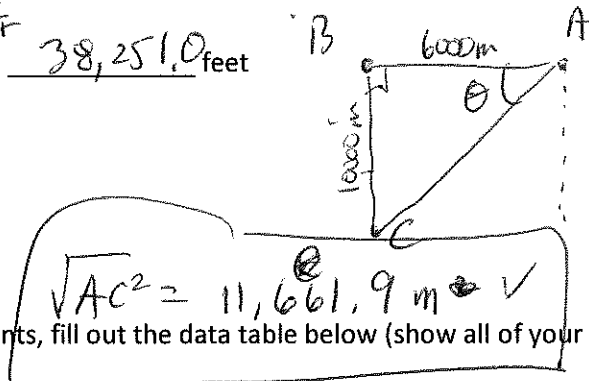 38,251.0 feet
B 6000m A
θ
10000m
C
√AC² = 11,661.9 m ✓
nts, fill out the data table below (show all of your